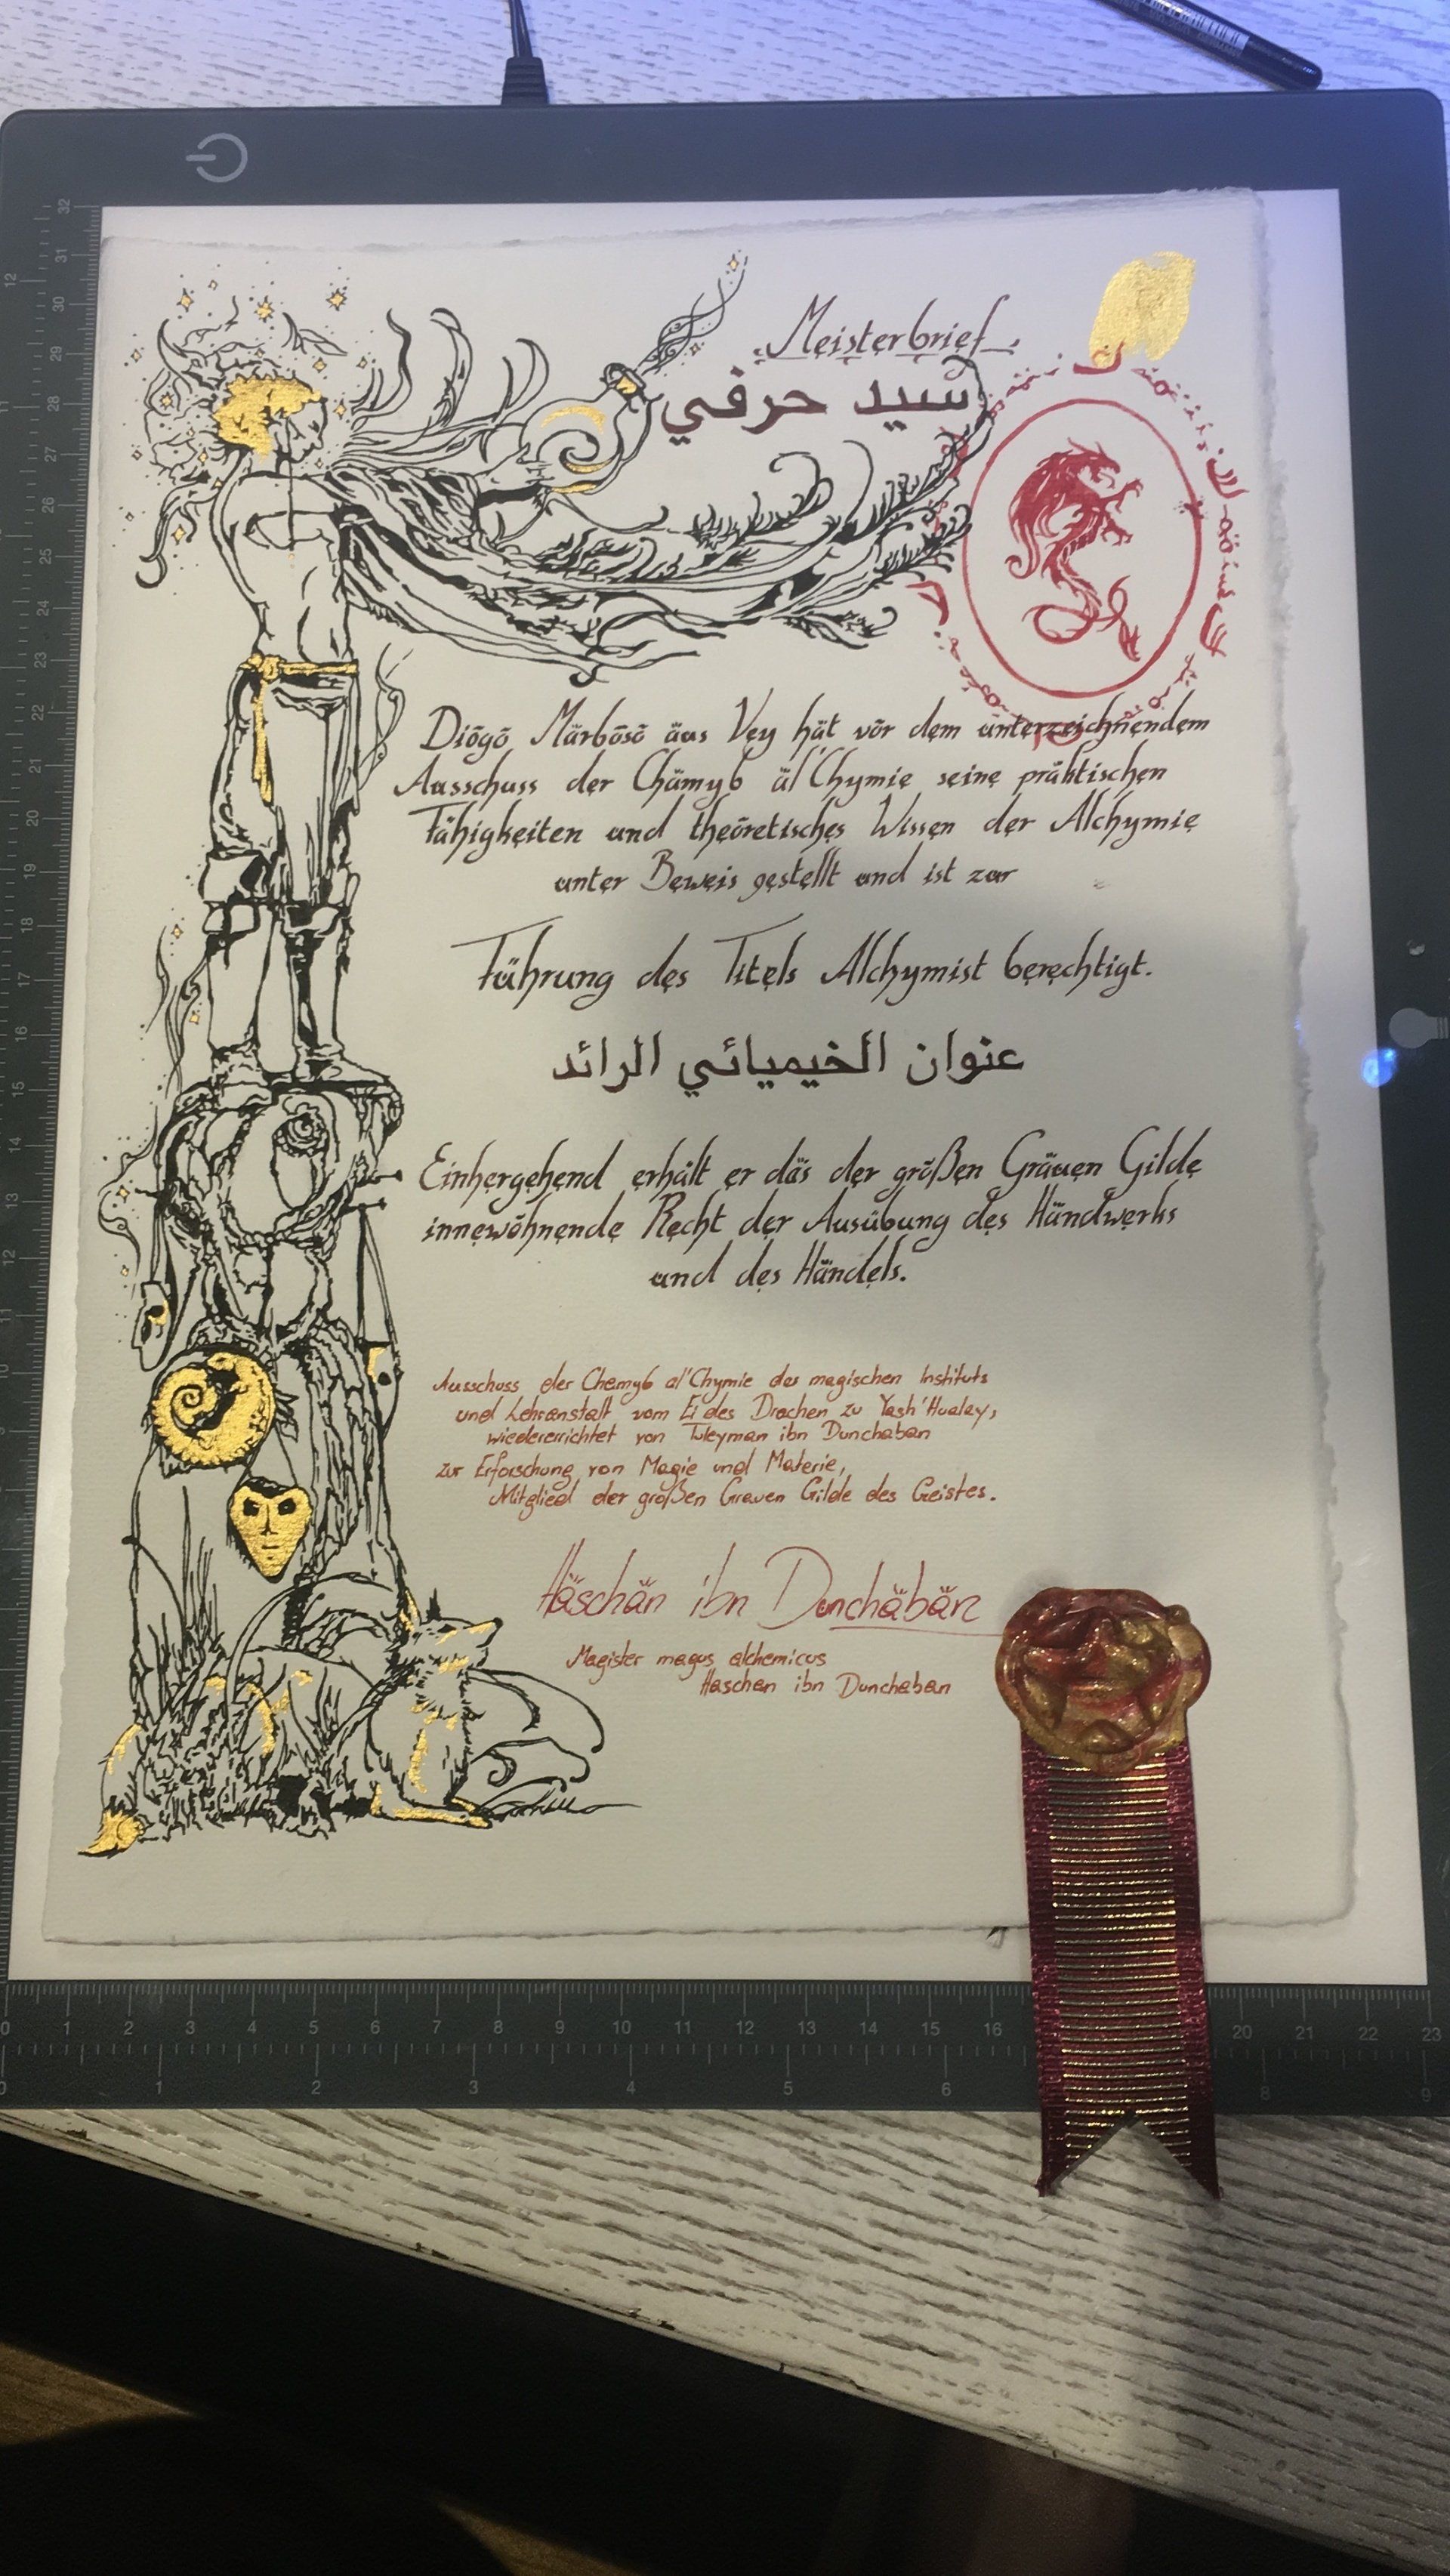 Meisterbrief
سيد حرفي
Diōgō Märbōsō äus Vey hät vōr dem unterzeichnendem
Ausschuss der Chämyb äl'Chymie seine präktischen
Fähigkeiten und theōretisches Wissen der Alchymie
unter Beweis gestellt und ist zur
Führung des Titels Alchymist berechtigt.
عنوان الخيميائي الرائد
Einhergehend erhält er däs der grōßen Gräuen Gilde
innewōhnende Recht der Ausübung des Händwerks
und des Händels.
Ausschuss der Chemyb al'Chymie des magischen Instituts
und Lehranstalt vom Ei des Drachen zu Yash'Hualay,
wiedererrichtet von Tuleyman ibn Dunchaban
zur Erforschung von Magie und Materie,
Mitglied der großen Grauen Gilde des Geistes.
Häschän ibn Dunchäbän
Magister magus alchemicus
Haschan ibn Dunchaban
32
31
30
29
28
27
26
25
24
23
22
21
20
19
18
17
16
15
14
13
12
0 1 2 3 4 5 6 7 8 9 10 11 12 13 14 15 16 20 21 22 23
0 1 2 3 4 5 6 8 9